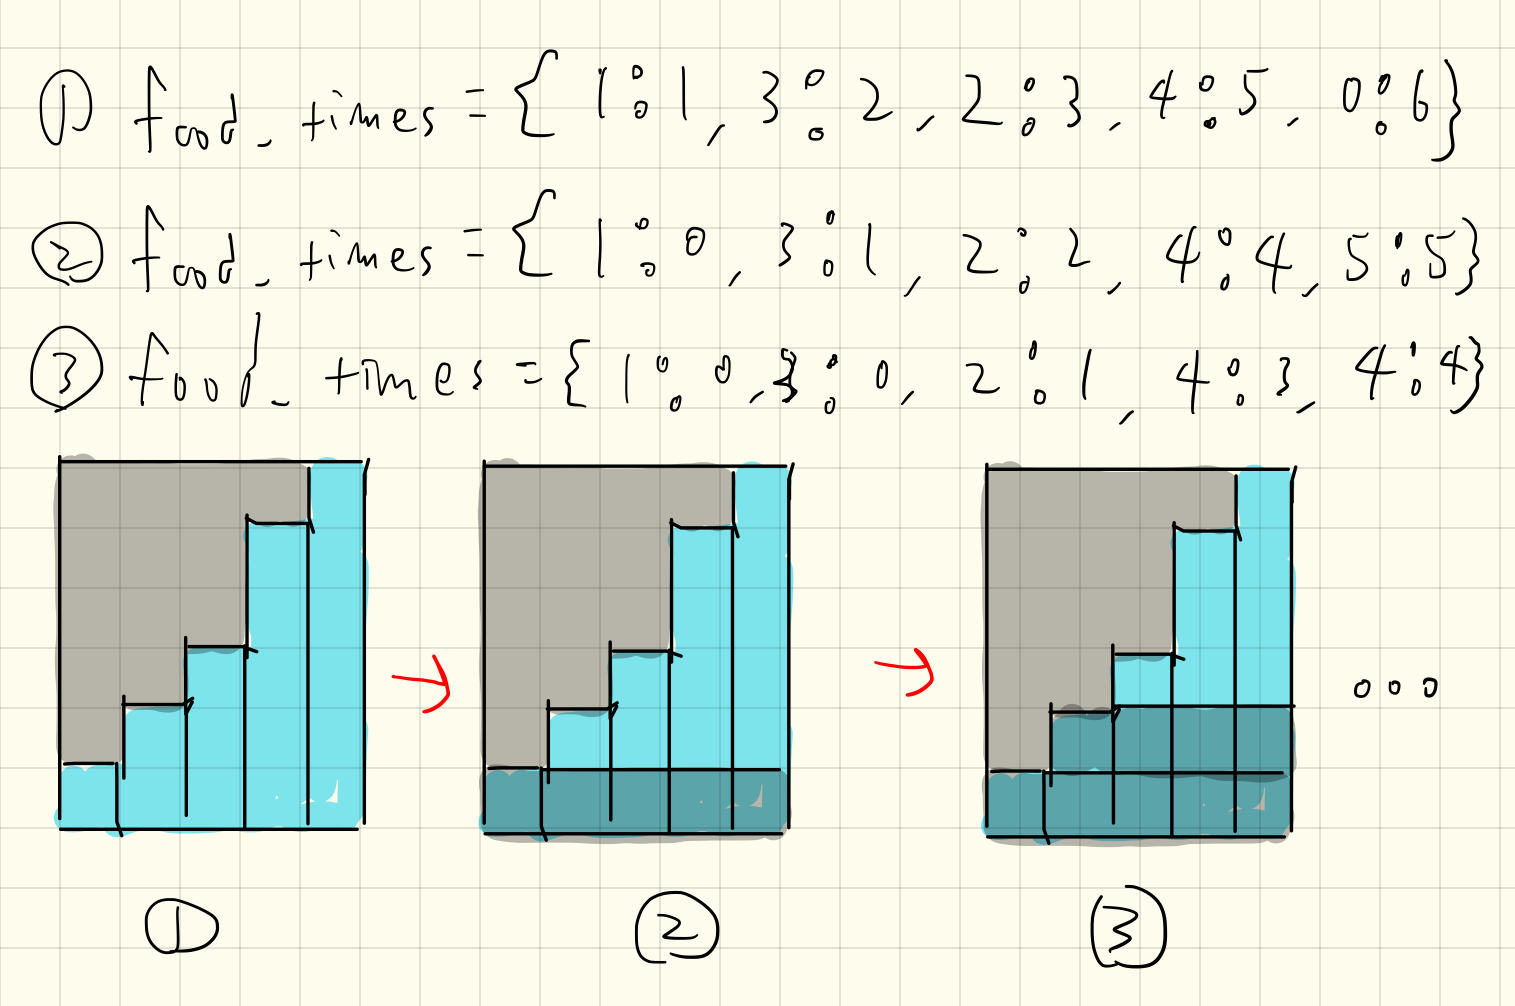 ① food_times = { 1:1, 3:2, 2:3, 4:5, 0:6}
② food_times = { 1:0, 3:1, 2:2, 4:4, 5:5}
③ food_times = { 1:0, 3:0, 2:1, 4:3, 4:4}
① ② ③